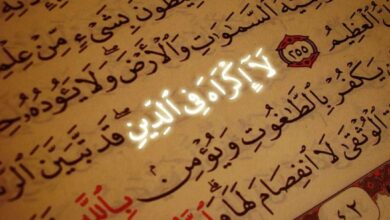 يطون بشيء من علمه
السموات والأرض ولا يؤده
العظيم ٢٥٥ لا إكراه في الدين قد تبين
يكفر بالطغوت ويؤمن بالله
الوثقى لا انفصام لها و
٤٢